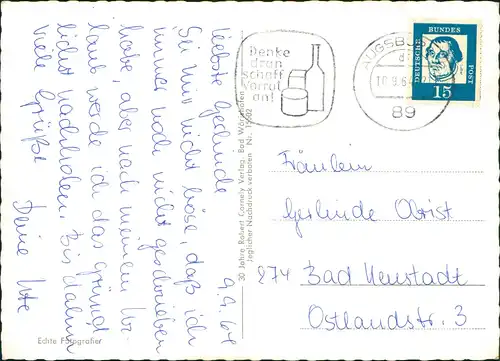 9.9.64
Liebste Gerlinde
Sei mir nicht böse, daß ich
immer noch nicht geschrieben
habe, aber nach meinem Ur-
laub werde ich das gründ-
lichst nachholen. Bis dahin
viele Grüße
Deine Ute
Echte Fotografie
30 Jahre Robert Cornely Verlag, Bad Wörishofen
Jeglicher Nachdruck verboten Nr.
Denke
dran
schaff
Vorrat
an!
AUGSBURG
89
DEUTSCHE BUNDES POST
15
Fräulein
Gerlinde Obrist
874 Bad Neustadt
Ostlandstr. 3